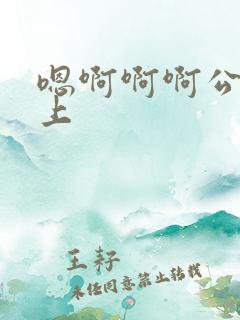 嗯啊啊啊公
上
王籽
未经同意禁止转载